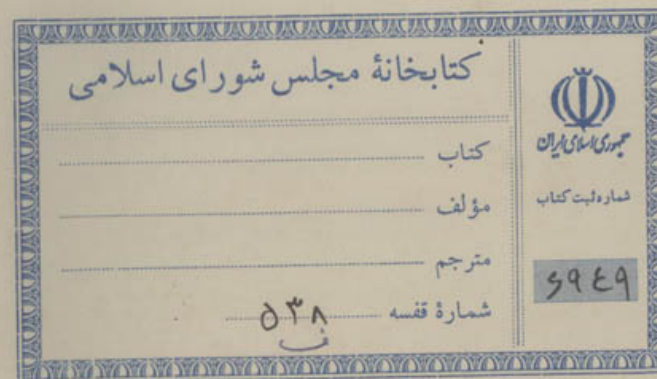 کتابخانهٔ مجلس شورای اسلامی
کتاب
مؤلف
مترجم
شمارهٔ قفسه ۵۳۸
ف
جمهوری اسلامی ایران
شماره ثبت کتاب
۶۹۴۹